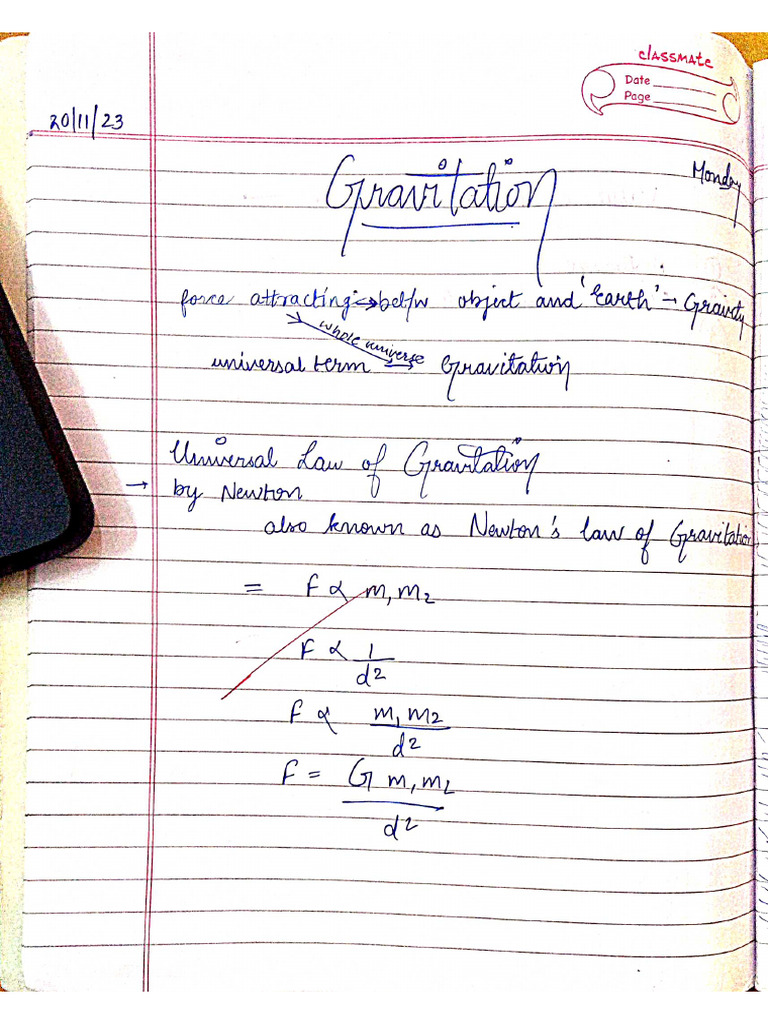 classmate
Date
Page
20/11/23
Monday
Gravitation
force attracting → bet/w object and 'Earth' → Gravity
whole universe
universal term → Gravitation
Universal Law of Gravitation
→ by Newton
also known as Newton's law of Gravitation
= F ∝ m₁m₂
F ∝ 1
d²
F ∝ m₁m₂
d²
F = G m₁m₂
d²